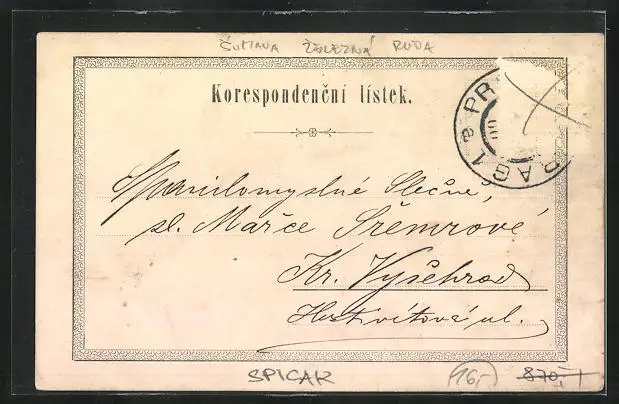 ŠUMAVA ŽELEZNÁ RUDA
Korespondenční lístek.
PRAG 1 a PR
00
Spanilomyslné Slečně,
sl. Mařce Šremrové
Kr. Vyšehrad
Hostivítová ul.
SPICAK
16,- 870,-